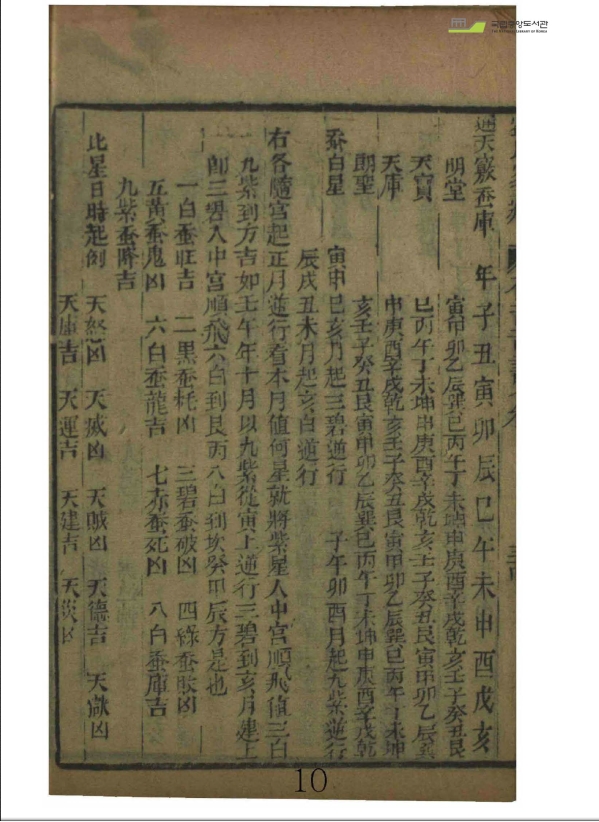 국립중앙도서관
THE NATIONAL LIBRARY OF KOREA
通天竅蚕庫 年子丑寅卯辰巳午未申酉戌亥
明堂 寅甲卯乙辰巽巳丙午丁未坤申庚酉辛戌乾亥壬子癸丑艮
天寶 巳丙午丁未坤申庚酉辛戌乾亥壬子癸丑艮寅甲卯乙辰巽
天庫 申庚酉辛戌乾亥壬子癸丑艮寅甲卯乙辰巽巳丙午丁未坤
聖 亥壬子癸丑艮寅甲卯乙辰巽巳丙午丁未坤申庚酉辛戌乾
蚕白星 寅申巳亥月起三碧逆行 子午卯酉月起九紫逆行
辰戌丑未月起六白逆行
右各隨宮起正月逆行看本月值何星就將紫星入中宮順飛值三白
九紫到方吉如壬午年十月以九紫從寅上逆行三碧到亥月建上
即三碧入中宮順飛六白到艮丙八白到坎癸申辰方是也
一白蚕旺吉 二黑蚕耗凶 三碧蚕破凶 四綠蚕敗凶
五黃蚕鬼凶 六白蚕龍吉 七赤蚕死凶 八白蚕庫吉
九紫蚕 吉
此星日時起例 天怒凶 天威凶 天賊凶 天德吉 天獄凶
天庫吉 天運吉 天建吉 天災凶
10